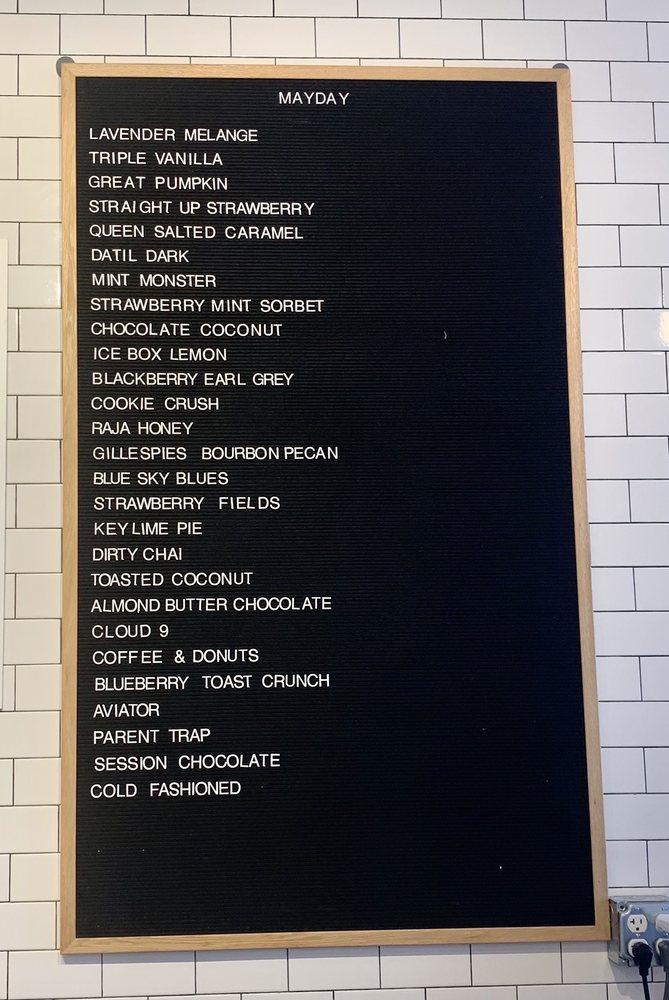 MAYDAY
LAVENDER MELANGE
TRIPLE VANILLA
GREAT PUMPKIN
STRAIGHT UP STRAWBERRY
QUEEN SALTED CARAMEL
DATIL DARK
MINT MONSTER
STRAWBERRY MINT SORBET
CHOCOLATE COCONUT
ICE BOX LEMON
BLACKBERRY EARL GREY
COOKIE CRUSH
RAJA HONEY
GILLESPIES BOURBON PECAN
BLUE SKY BLUES
STRAWBERRY FIELDS
KEY LIME PIE
DIRTY CHAI
TOASTED COCONUT
ALMOND BUTTER CHOCOLATE
CLOUD 9
COFFEE & DONUTS
BLUEBERRY TOAST CRUNCH
AVIATOR
PARENT TRAP
SESSION CHOCOLATE
COLD FASHIONED